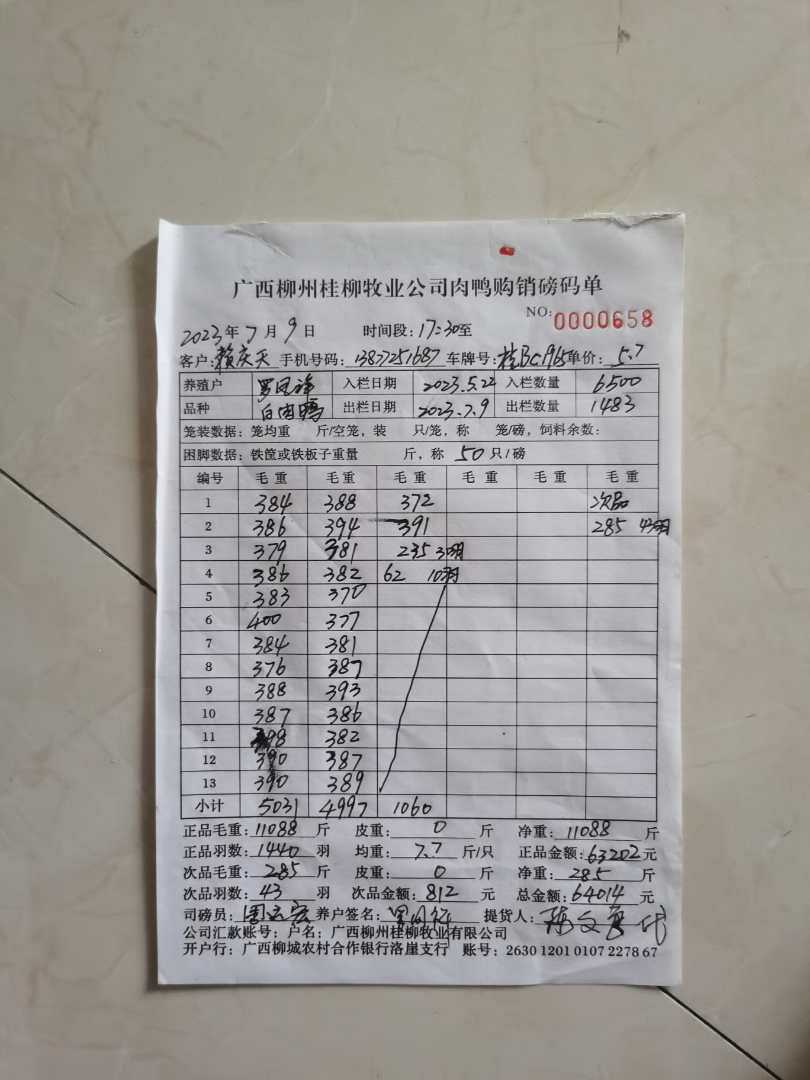 广西柳州桂柳牧业公司肉鸭购销磅码单
NO: 0000658
2023年7月9日 时间段: 17:30至
客户: 赖庆天 手机号码: 13877251687 车牌号: 桂BC1965 单价: 5.7
养殖户 入栏日期 2023.5.22 入栏数量 6500
品种 白肉鸭 出栏日期 2023.7.9 出栏数量 1483
笼装数据: 笼均重 斤/空笼, 装 只/笼, 称 笼/磅, 饲料余数:
困脚数据: 铁筐或铁板子重量 斤, 称 50 只/磅
编号 毛重 毛重 毛重 毛重 毛重 毛重
1 384 388 372 次品
2 386 394 391 285 43羽
3 379 381 235 30羽
4 386 382 62 10羽
5 383 370
6 400 377
7 384 381
8 376 387
9 388 393
10 387 386
11 398 382
12 390 387
13 390 389
小计 5031 4997 1060
正品毛重: 11088 斤 皮重: 0 斤 净重: 11088 斤
正品羽数: 1440 羽 均重: 7.7 斤/只 正品金额: 63202 元
次品毛重: 285 斤 皮重: 0 斤 净重: 285 斤
次品羽数: 43 羽 次品金额: 812 元 总金额: 64014 元
司磅员: 养户签名: 提货人: 代
公司汇款账号: 户名: 广西柳州桂柳牧业有限公司
开户行: 广西柳城农村合作银行洛崖支行 账号: 2630 1201 0107 2278 67